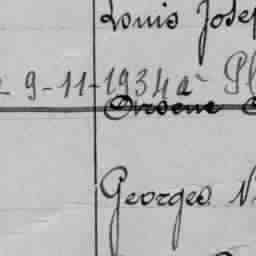 Louis Josep
9-11-1934 à Pl
Georges N